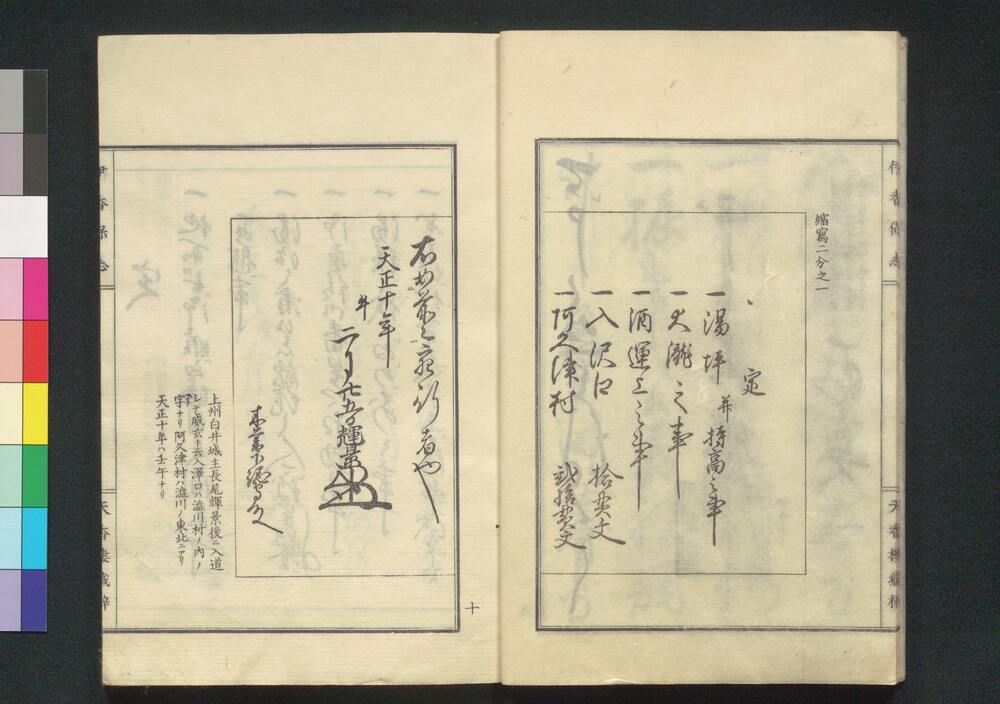 伊香保志
縮寫二分之一
定
一湯坪并持高之事
一大瀧之事
一酒運上之事
一入沢口 拾貫文
一阿久津村 弐拾貫文
天香楼蔵梓
右如前々可執行者也
天正十年
午
二月廿五日輝景
木暮下總守殿
上州白井城主長尾輝景後ニ入道
シテ咸玄ト云入澤口ハ澁川村ノ内ノ
字ナリ阿久津村ハ澁川ノ東北ニアリ
天正十年ハ壬午ナリ
十
伊香保志
天香楼蔵梓